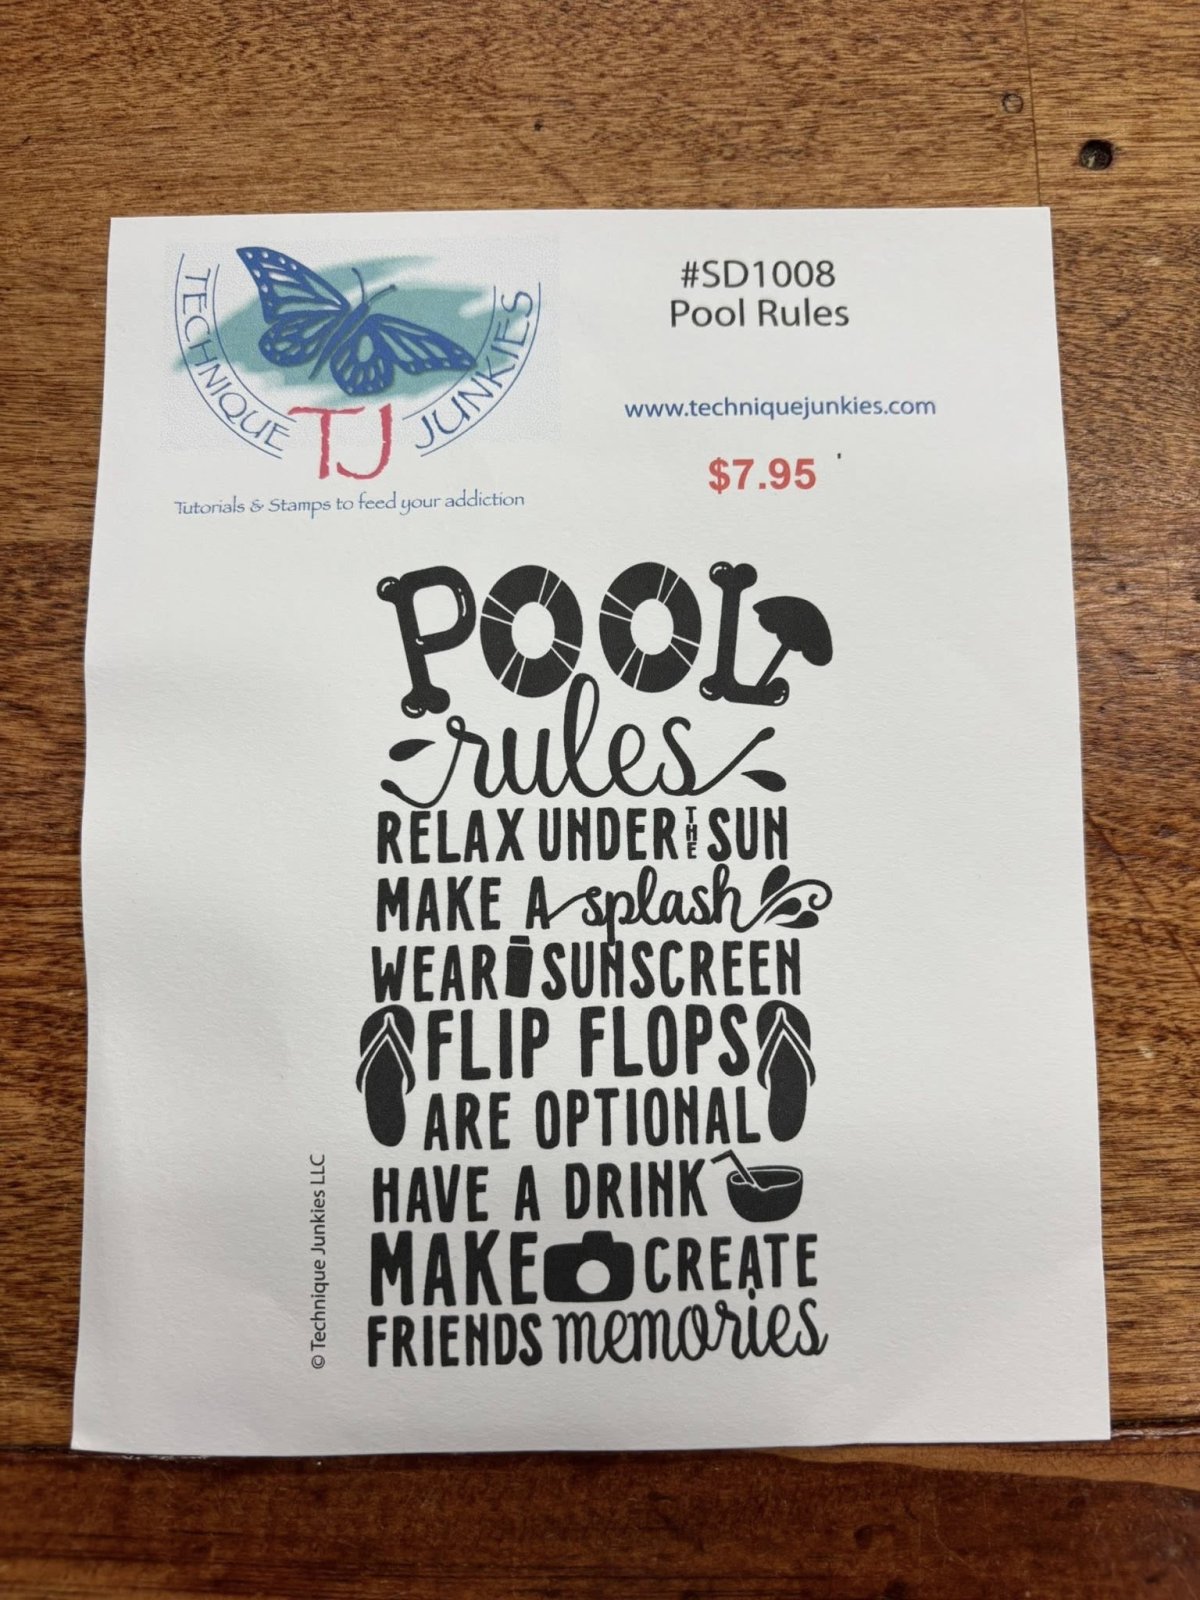 TECHNIQUE JUNKIES
TJ
Tutorials & Stamps to feed your addiction
#SD1008
Pool Rules
www.techniquejunkies.com
$7.95
POOL
rules
RELAX UNDER THE SUN
MAKE A splash
WEAR SUNSCREEN
FLIP FLOPS
ARE OPTIONAL
HAVE A DRINK
MAKE CREATE
FRIENDS memories
© Technique Junkies LLC